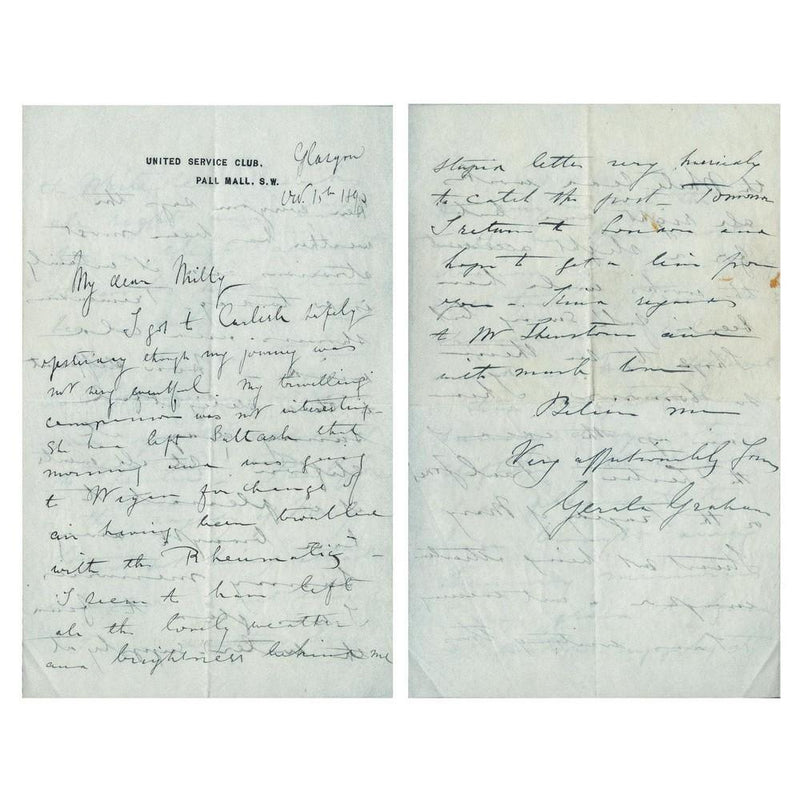 UNITED SERVICE CLUB,
PALL MALL, S.W.
Glasgow
Oct. 15th 1890
My dear Milly
I got to Carlisle safely
yesterday though my journey was
not very eventful. My travelling
companion was not interesting.
She had left Saltash that
morning and was going
to Wigan for change of
air having been troubled
with the "Rheumatic"
I seem to have left
all the lovely weather
and brightness behind me
stupid letter very hurriedly
to catch the post. Tomorrow
I return to London and
hope to get a line from
you. Kind regards
to Mr and
with much love
Believe me
Very affectionately Yours
Gerald Graham